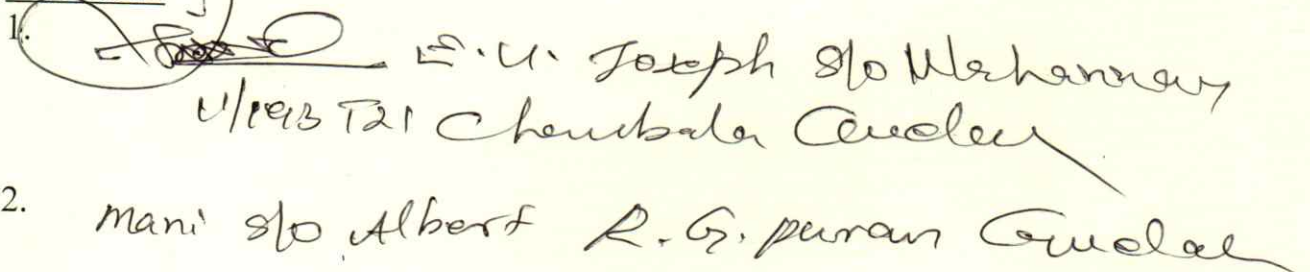 1. E.U. Joseph S/o Wahannan
V/193 T21 Chembala Gudalur
2. Mani S/o Albert R.G. puram Gudalur